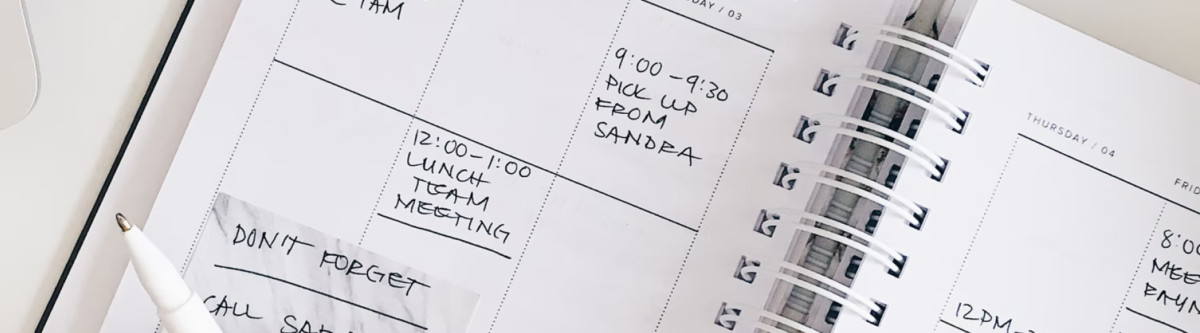 7AM
/ 03
9:00 - 9:30
PICK UP
FROM
SANDRA
12:00-1:00
LUNCH
TEAM
MEETING
DON'T FORGET
CALL
THURSDAY / 04
12PM-